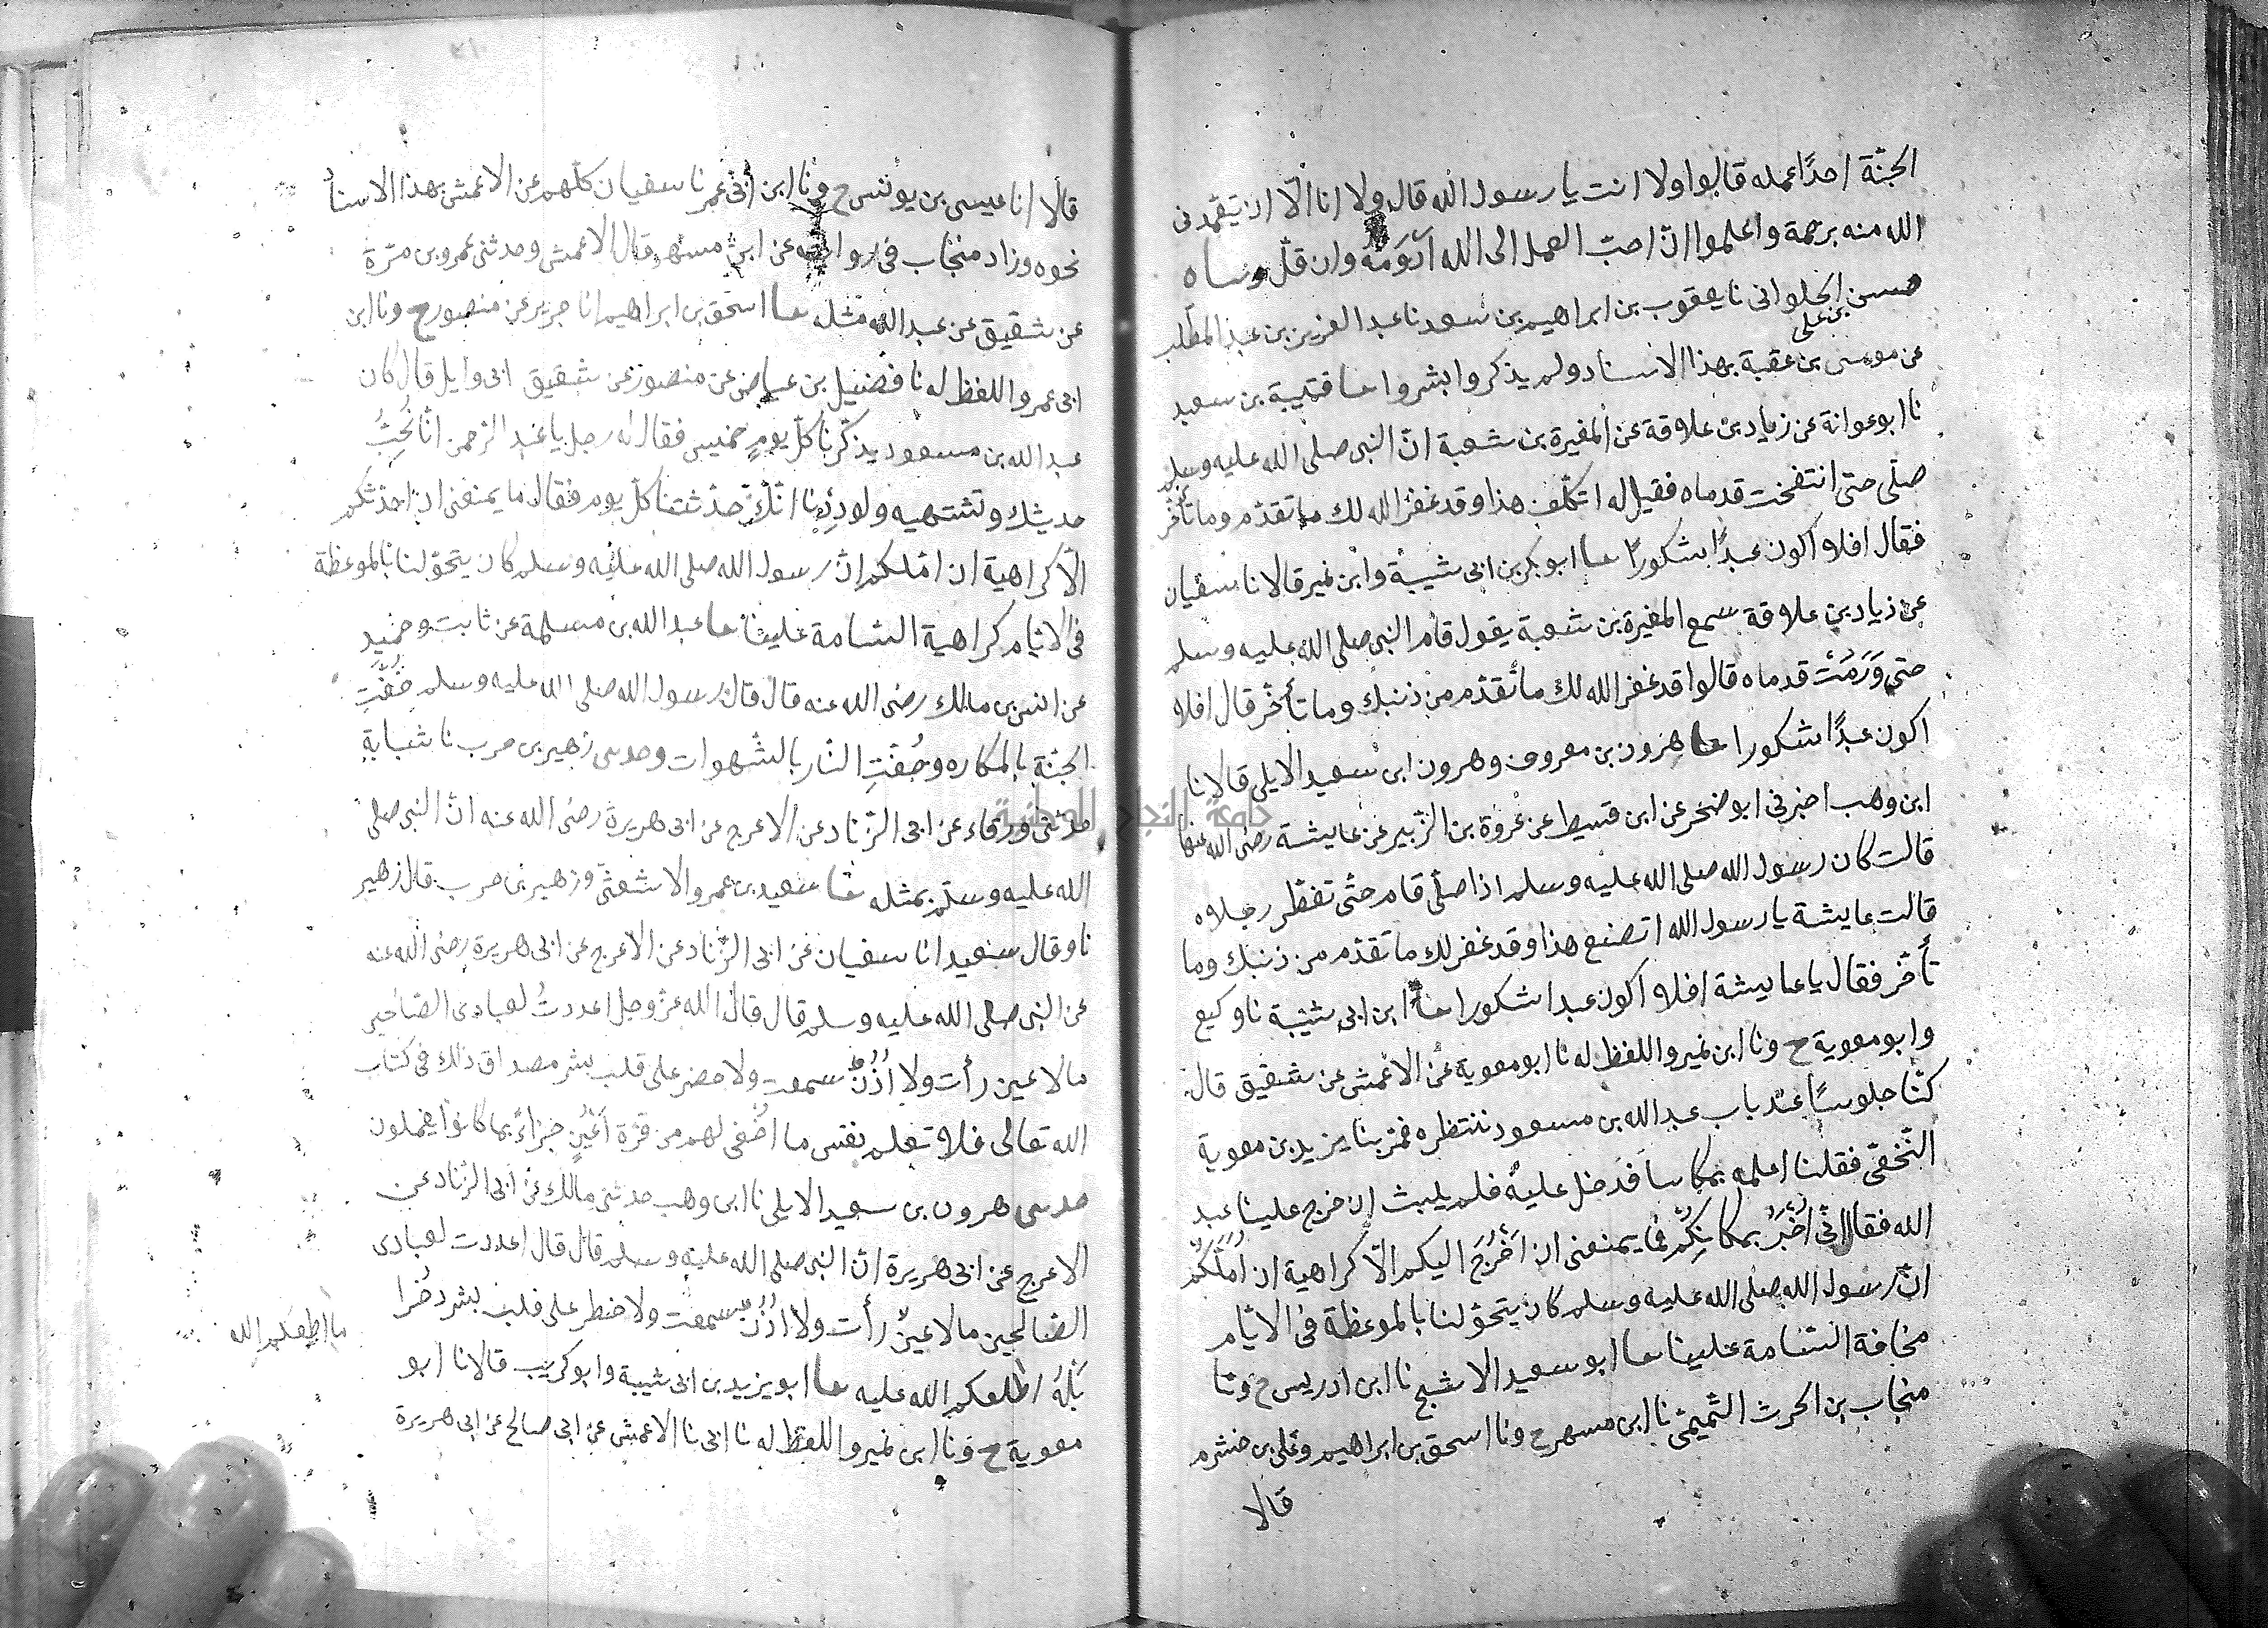 الجنّة احدًا عمله قالوا ولا انت يا رسول الله قال ولا انا الّا ان يتغمّدنى
الله منه برحمة واعلموا انّ احبّ العمل الى الله اَدْوَمُهُ وان قلّ وساه
حسن الحلوانى نا يعقوب بن ابراهيم بن سعد نا عبد العزيز بن عبد المطّلب
بن على
عن موسى بن عقبة بهذا الاسناد ولم يذكر وابشروا حا قتيبة بن سعيد
نا ابو عوانة عن زياد بن علاقة عن المغيرة بن شعبة انّ النبى صلى الله عليه وسلم
صلّى حتى انتفخت قدماه فقيل له اتكلّف هذا وقد غفر الله لك ما تقدّم وما تأخّر
فقال افلا اكون عبدًا شكورًا حا ابو بكر بن ابى شيبة وابن نمير قالا نا سفيان
عن زياد بن علاقة سمع المغيرة بن شعبة يقول قام النبى صلى الله عليه وسلم
حتى وَرِمَتْ قدماه قالوا قد غفر الله لك ما تقدّم من ذنبك وما تأخّر قال افلا
اكون عبدًا شكورا حا هرون بن معروف وهرون ابن سعيد الايلى قالا نا
ابن وهب اخبرنى ابو ضخر عن ابن قسيط عن عروة بن الزّبير عن عايشة رضى الله عنها
قالت كان رسول الله صلى الله عليه وسلم اذا صلّى قام حتّى تفطّر رجلاه
قالت عايشة يا رسول الله اتصنع هذا وقد غفر لك ما تقدّم من ذنبك وما
تأخّر فقال يا عايشة افلا اكون عبدا شكورا حا ابن ابى شيبة نا وكيع
وابو معوية ح ونا ابن نمير واللفظ له نا ابو معوية عن الاعمش عن شقيق قال
كنّا جلوسًا عند باب عبد الله بن مسعود ننتظره فمرّ بنا يزيد بن معوية
النّخعىّ فقلنا اعلمه بمكاننا فدخل عليه فلم يلبث ان خرج علينا عبد
الله فقال انّى اُخْبَرُ بمكانِكُم فما يمنعنى ان اَخْرُجَ اليكم الّا كراهية ان اُمِلَّكُم
انّ رسول الله صلى الله عليه وسلم كان يتخوّلنا بالموعظة فى الايّام
مخافة السّامة علينا حا ابو سعيد الاشج نا ابن ادريس ح ونا
منجاب بن الحرث التّميمىّ نا ابن مسهر ح ونا اسحق بن ابراهيم وعلى بن خشرم
قالا
قالا انا عيسى بن يونس ح ونا ابن أبى عمر نا سفيان كلّهم عن الاعمش بهذا الاسناد
نحوه وزاد منجاب فى روايته عن ابن مسهر قال الاعمش وحدثنى عمرو بن مرّة
عن شقيق عن عبد الله مثله حا اسحق بن ابراهيم انا جرير عن منصور ح ونا ابن
ابى عمر واللفظ له نا فضيل بن عياض عن منصور عن شقيق ابى وايل قال كان
عبد الله بن مسعود يذكّرنا كلّ يومٍ خميس فقال له رجل يا عبد الرّحمن انّا نُحِبُّ
حديثك ونشتهيه ولوددنا انّك حدّثتنا كلّ يوم فقال ما يمنعنى ان احدّثكم
الّا كراهية ان املّكم انّ رسول الله صلى الله عليه وسلم كان يتخوّلنا بالموعظة
فى الايّام كراهية السّامة علينا حا عبد الله بن مسلمة عن ثابت وحميد
عن انس بن مالك رضى الله عنه قال قال رسول الله صلى الله عليه وسلم حُفَّتِ
الجنّة بالمكاره وحُفَّتِ النّار بالشّهوات وحدسى زهير بن حرب نا شبابة
حدثنى ورقاء عن ابى الزّناد عن الاعرج عن ابى هريرة رضى الله عنه انّ النبى صلى
الله عليه وسلم بمثله حا سعيد بن عمرو الاشعثى وزهير بن حرب قال زهير
نا وقال سعيد انا سفيان عن ابى الزّناد عن الاعرج عن ابى هريرة رضى الله عنه
عن النبى صلى الله عليه وسلم قال قال الله عزّ وجل اعددتُ لعبادى الصّالحين
ما لا عين رأت ولا اُذُنٌ سمعت ولا خطر على قلب بشر مصداق ذلك فى كتاب
الله تعالى فلا تعلم نفس ما اُخفى لهم من قرّة اَعْيُنٍ جزاءً بما كانوا يعملون
حدسى هرون بن سعيد الايلى نا ابن وهب حدثنى مالك عن ابى الزّناد عن
الاعرج عن ابى هريرة انّ النبى صلى الله عليه وسلم قال قال اعددت لعبادى
الصّالحين ما لا عينٌ رأت ولا اُذُنٌ سمعت ولا خطر على قلب بشر ذخرا
بَلْهَ اطلعكم الله عليه حا ابو يزيد بن ابى شيبة وابو كريب قالا نا ابو
معوية ح ونا ابن نمير واللفظ له نا ابى نا الاعمش عن ابى صالح عن ابى هريرة
ما اطلعكم الله
جامعة النجاح الوطنية